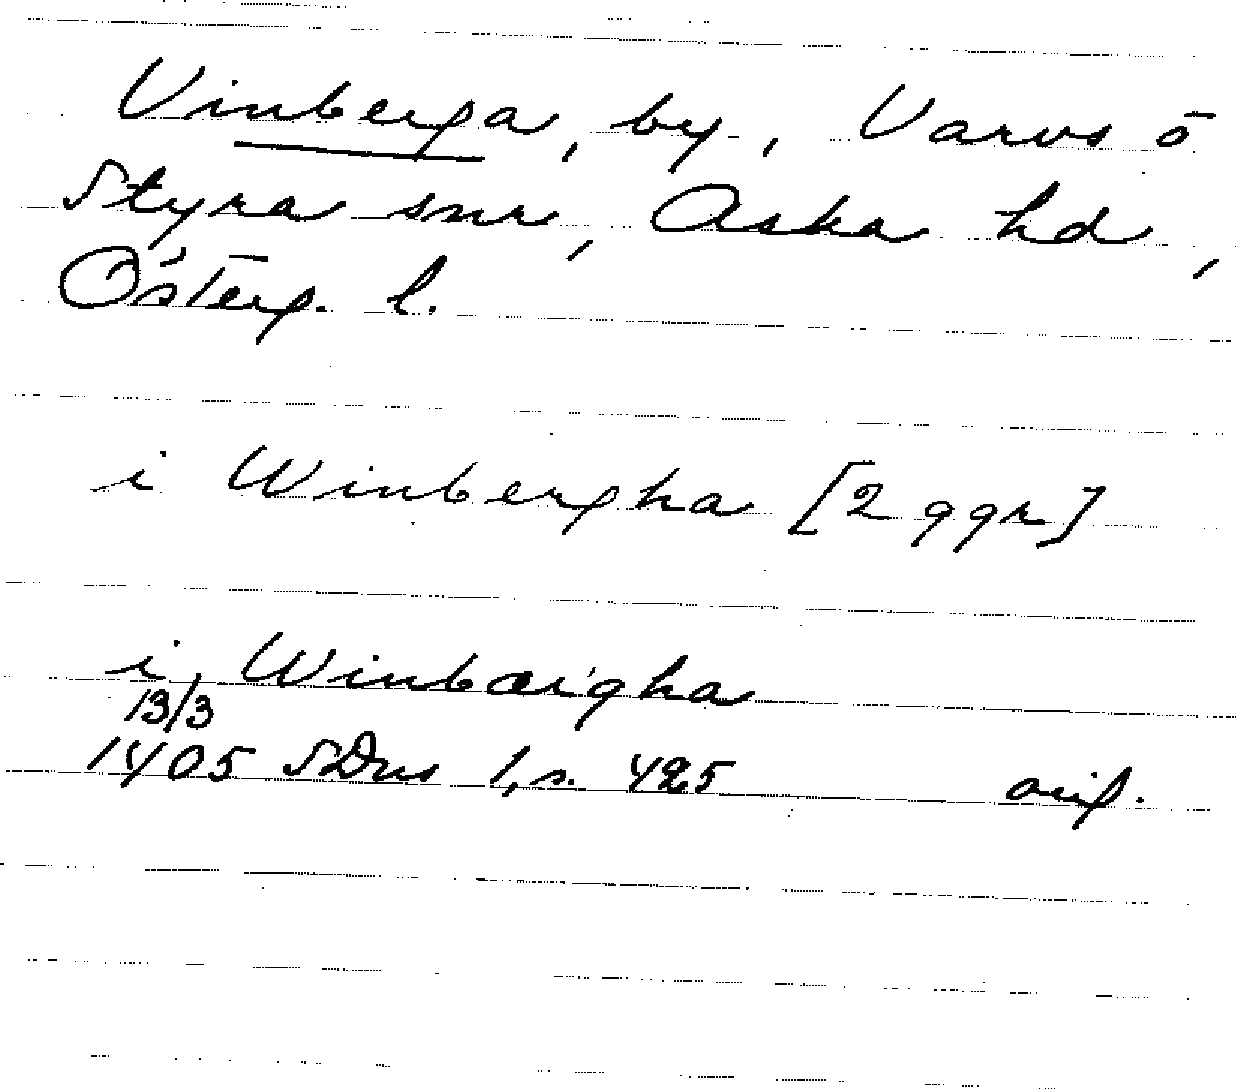 Vinberga, by, Varvs o
Styra snr, Aska hd,
Österg. l.
i Winbergha [2 ggr]
i Winbærgha
13/3
1405 SDns 1, s. 425 orig.